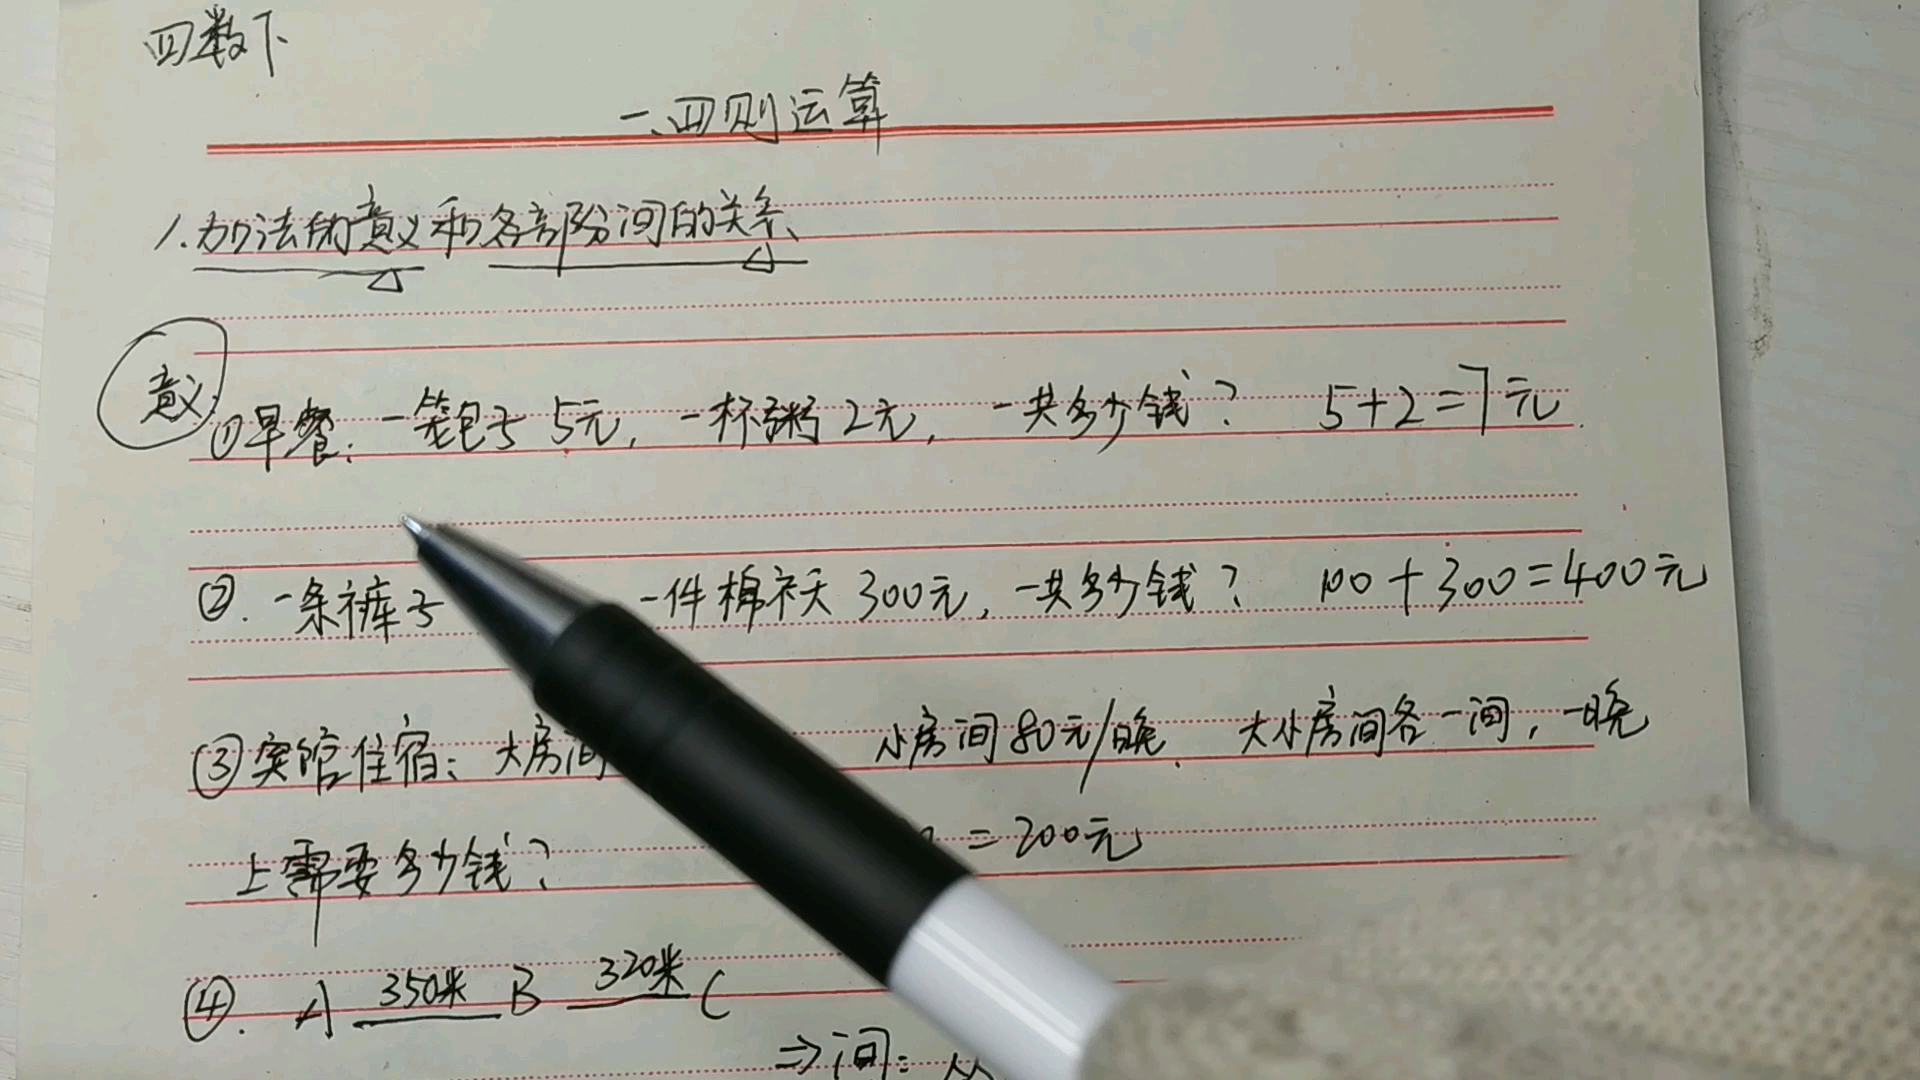 四数下
一、四则运算
1.加法的意义和各部分间的关系
意义
①早餐：一笼包子5元，一杯粥2元，一共多少钱？ 5+2=7元.
②.一条裤子 一件棉袄300元，一共多少钱？ 100+300=400元
③宾馆住宿：大房间 小房间80元/晚. 大小房间各一间，一晚
上需要多少钱？ =200元
④. A 350米 B 320米 C
⇒问：从